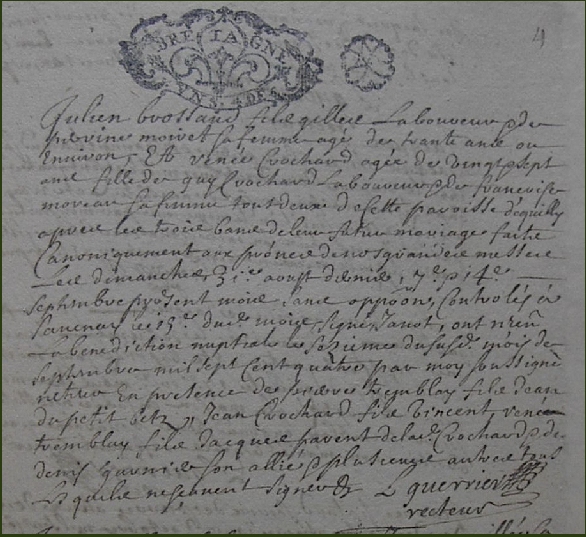 BRETAGNE
4
Julien brossard fils gilles Laboureur & de
perrine moivet sa femme agé de trante ans ou
Enuiron, Et renée Crochard agée de vingt sept
ans fille de guy Crochard Laboureur & de francoise
moreau sa femme tout deux de cette paroisse de quilly
apres les trois bans de leur futur mariage faits
Canoniquement aux prônes de nos grandes messes
Les dimanches, 31e aoust dernier, 7e & 14e
Septembre present mois sans oppôon, Controlés à
Sauenay le 15e dud. mois signé Janot, ont receu
La benediction nuptiale le seizieme du susd. mois de
Septembre mil sept Cent quatre par moy soussigné
recteur En presence de tremblay fils Jean
du petit betz, Jean Crochard fils vincent, rené
tremblay fils Jacques parent de lad. Crochard & de
denis garnier son allié & plusieurs autres tous
Lesquels ne sçauent signer &
L guerrier
recteur